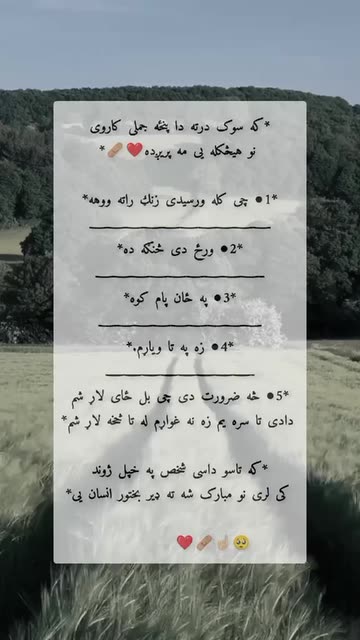 *که سوک درته دا پنځه جملی کاروی
نو هیڅکله یی مه پریږده❤️🩹*
*1● چی کله ورسیدی زنګ راته ووهه*
*2● ورځ دی څنګه ده*
*3● په ځان پام کوه*
*4● زه په تا ویاړم.*
*5● څه ضرورت دی چی بل ځای لاړ شم
دادی تا سره یم زه نه غواړم له تا څخه لاړ شم*
*که تاسو داسی شخص په خپل ژوند
کی لری نو مبارک شه ته ډیر بختور انسان یی*
❤️🩹☝🏼🥺